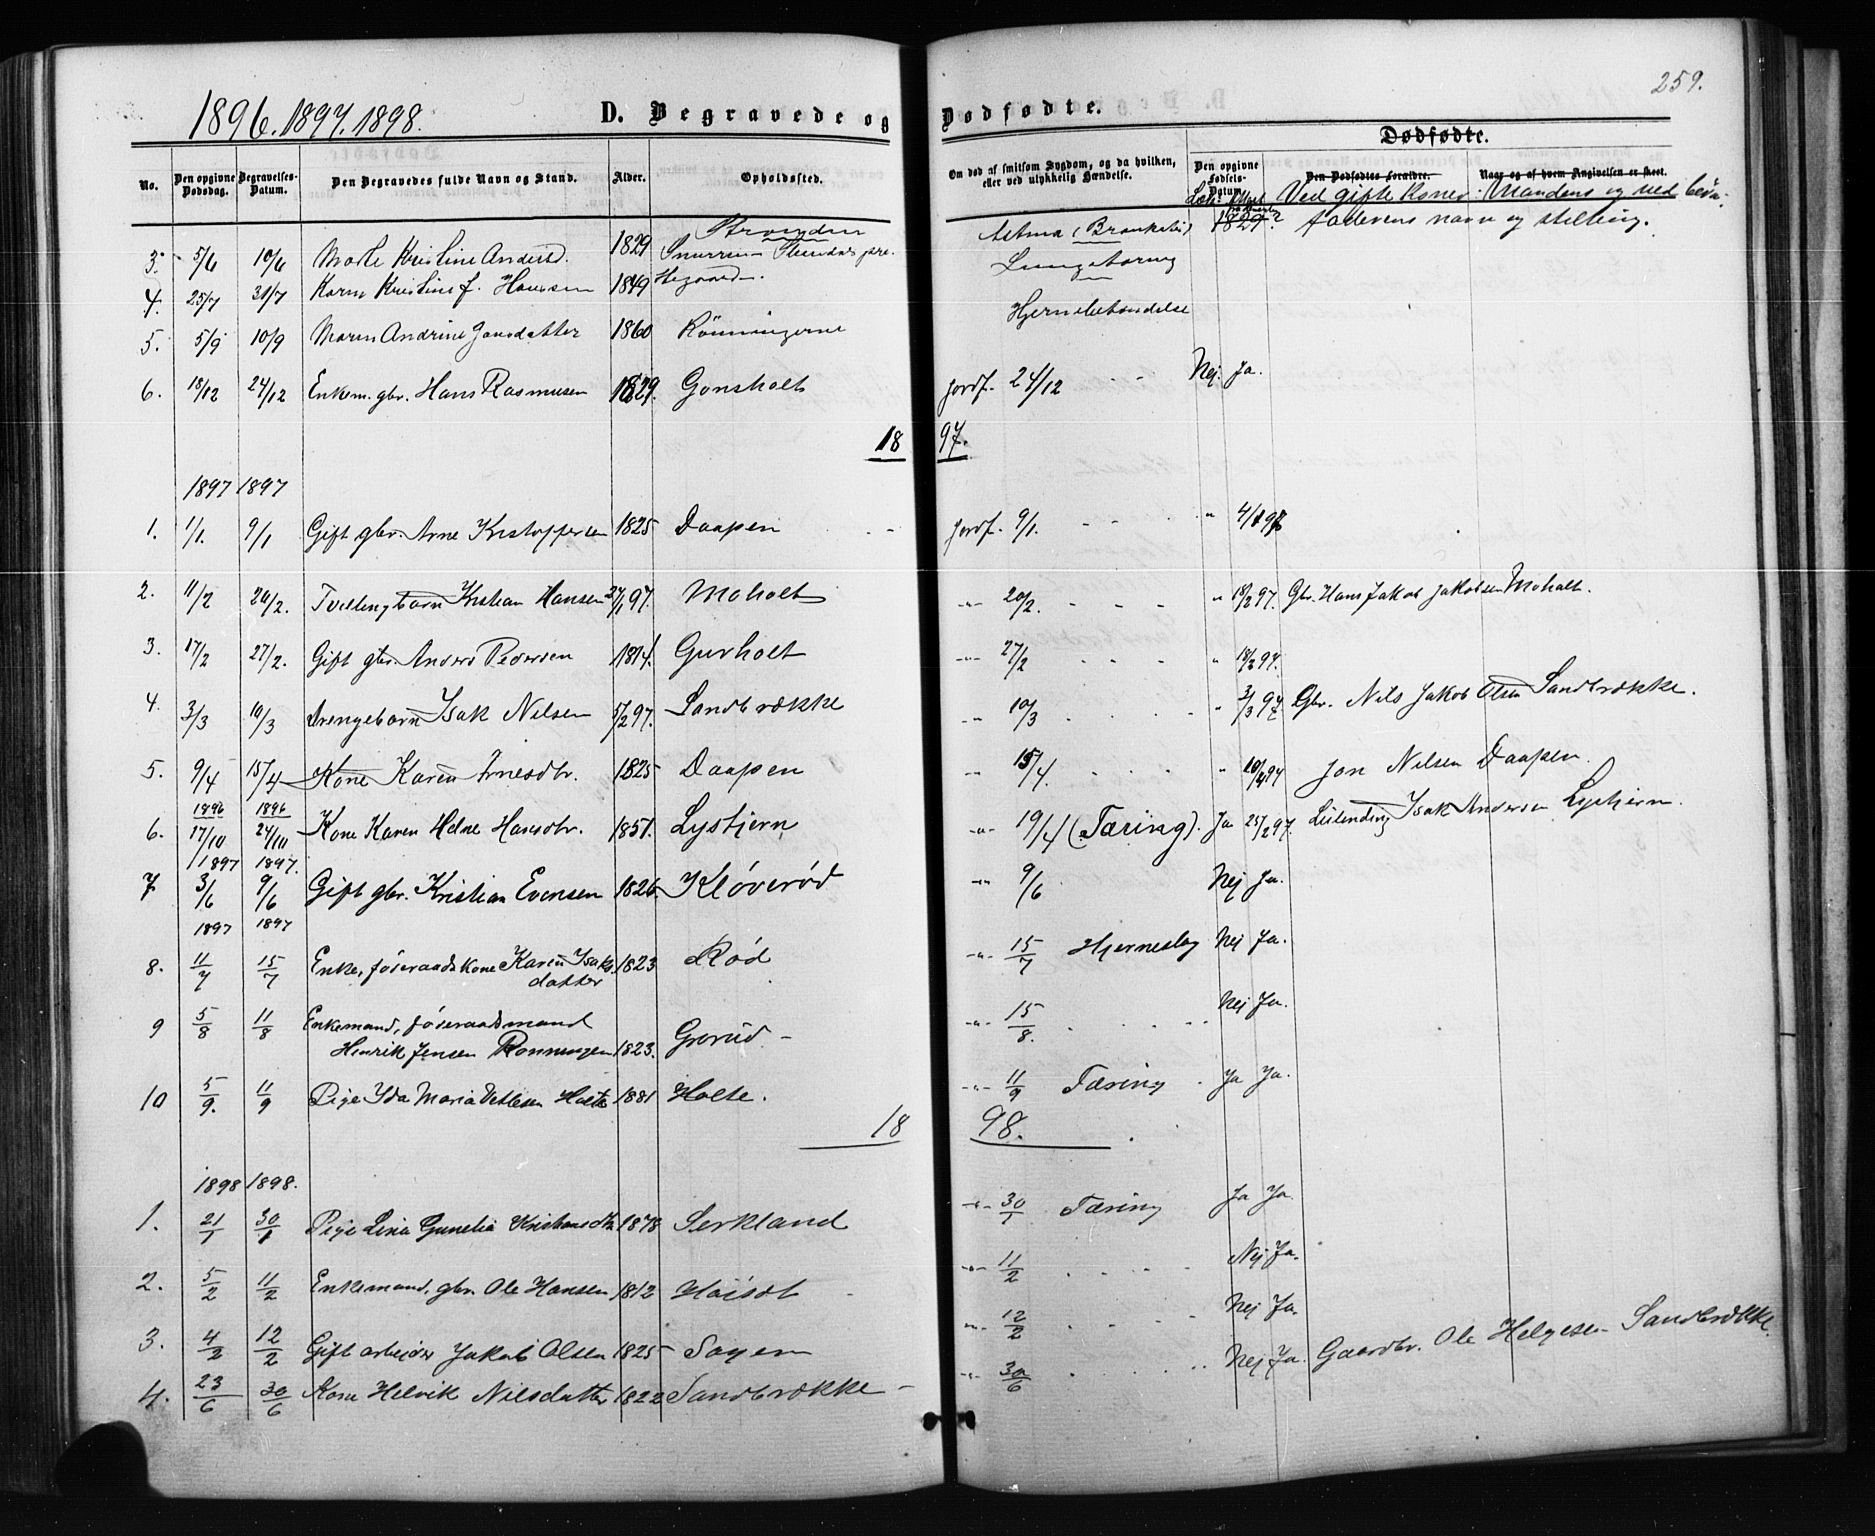 259.
1896. 1897. 1898.
D. Begravede og Dødfødte.
Dødfødte.
No. Den opgivne Dødsdag. Begravelses-Datum. Den Begravedes fulde Navn og Stand. Alder. Opholdssted. Om død af smitsom Sygdom, og da hvilken, eller ved ulykkelig Hændelse. Den opgivne Fødsels-Datum. Den Dødfødtes Forældre. Naar og af hvem Angivelsen er skeet.
Ved gifte Koner: Mandens og ved børn:
faderens navn og stilling.
3. 5/6 10/6 Marte Kristine Andersd. 1829 Snurren Astma (Bronkitis) 1829?
4. 25/7 31/7 Karen Kristine f. Hansen 1849 Hegaard Lungetæring
5. 5/9 10/9 Maren Andrine Jansdatter 1860 Rönningerne Hjernebetændelse
6. 18/12 24/12 Enkem. gbr. Hans Rasmusen 1829. Gonsholt jordf. 24/12 Nej. Ja.
1897.
1897 1897
1. 1/1. 9/1 Gift gbr. Arne Kristoffersen 1825 Daapen jordf. 9/1. " 4/1 97
2. 11/2 20/2. Tvillingbarn Kristian Hansen 27/1 97. Moholt -"- 20/2. " 18/2 97. Gbr. Hans Jakob Jakobsen Moholt.
3. 17/2 27/2. Gift gbr. Anders Pedersen 1814. Gurholt -"- 27/2 " 18/2 97.
4. 3/3 10/3 Drengebarn Isak Nilsen 5/2 97. Sandbrække -"- 10/3 " 3/3 97 Gbr. Nils Jakob Olsen Sandbrække.
5. 9/4 15/4 Kone Karen Arnesdtr. 1825 Daapen -"- 15/4. " 10/4 97 Jon Nilsen Daapen.
1896 1896
6. 17/10 24/10 Kone Karen Helne Hansdtr. 1851. Lystjern -"- 19/4 (Tæring). Ja 25/2 97. Leilending Isak Andersen Lystjern.
1897 1897.
7 3/6 9/6 Gift gbr. Kristian Evensen 1826. Kløverød -"- 9/6 Nej Ja.
1897 1897
8. 11/7 15/7 Enke, føderaadskone Karen Isaks- 1823 Rød -"- 15/7 Hjerneslag Nej Ja.
datter
9 5/8 11/8 Enkemand, føderaadsmand
Henrik Jensen Rønningen 1823. Grorud -"- 15/8. Nej Ja.
10 5/9. 11/9 Pige Ida Maria Detlesen Holte 1881 Holte. -"- 11/9 Tæring Ja Ja.
1898.
1898 1898.
1. 21/1 30/1 Pige Lina Gunelia Kristiansdtr 1878 Serkland -"- 30/1 Tæring Ja Ja.
2. 5/2 11/2 Enkemand, gbr. Ole Hansen 1812 Høiset -"- 11/2 Nej Ja.
3. 4/2 12/2 Gift arbeider Jakob Olsen 1825 Sagen -"- 12/2 Nej Ja.
4. 23/6 30/6 Kone Helvik Nilsdatter 1822 Sandbrække -"- 30/6 Nej Ja. Gaardbr. Ole Helgesen Sandbrække.